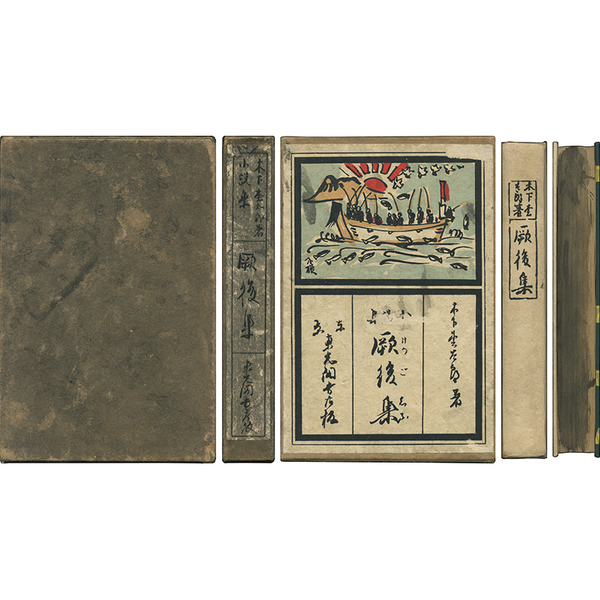 木下杢太郎著
小説集
厥後集
木下杢太郎著
厥後集
けつごしふ
東京
東光閣書店版
木下杢
太郎著
厥後集